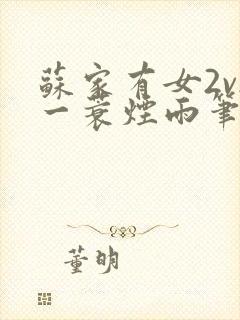 蘇家有女2v
一蓑煙雨筆
董明